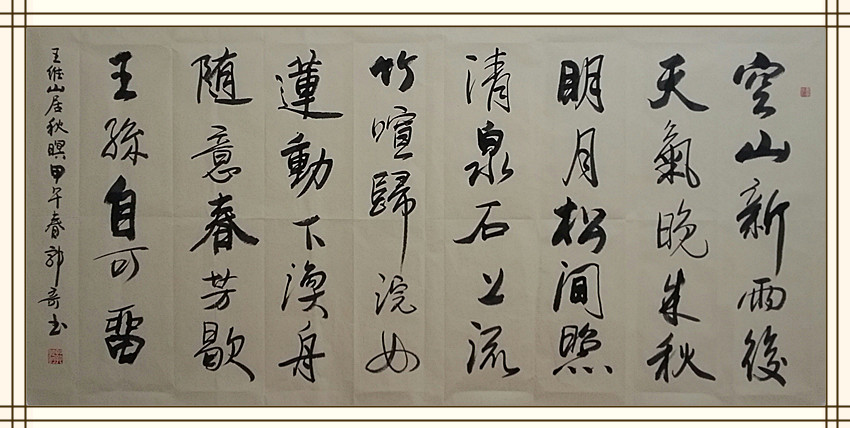 空山新雨後
天氣晚来秋
明月松間照
清泉石上流
竹喧歸浣女
蓮動下漁舟
随意春芳歇
王孫自可留
王維山居秋暝甲午春郭奇书